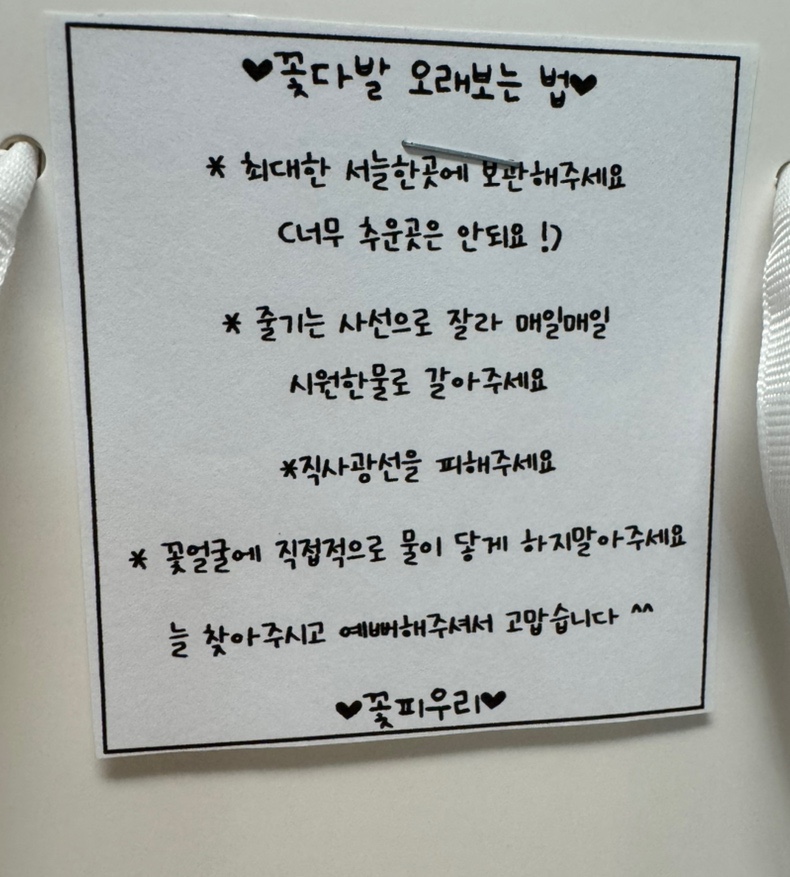 ♥꽃다발 오래보는 법♥
* 최대한 서늘한곳에 보관해주세요
(너무 추운곳은 안되요 !)
* 줄기는 사선으로 잘라 매일매일
시원한물로 갈아주세요
*직사광선을 피해주세요
* 꽃얼굴에 직접적으로 물이 닿게 하지말아주세요
늘 찾아주시고 예뻐해주셔서 고맙습니다 ^^
♥꽃피우리♥